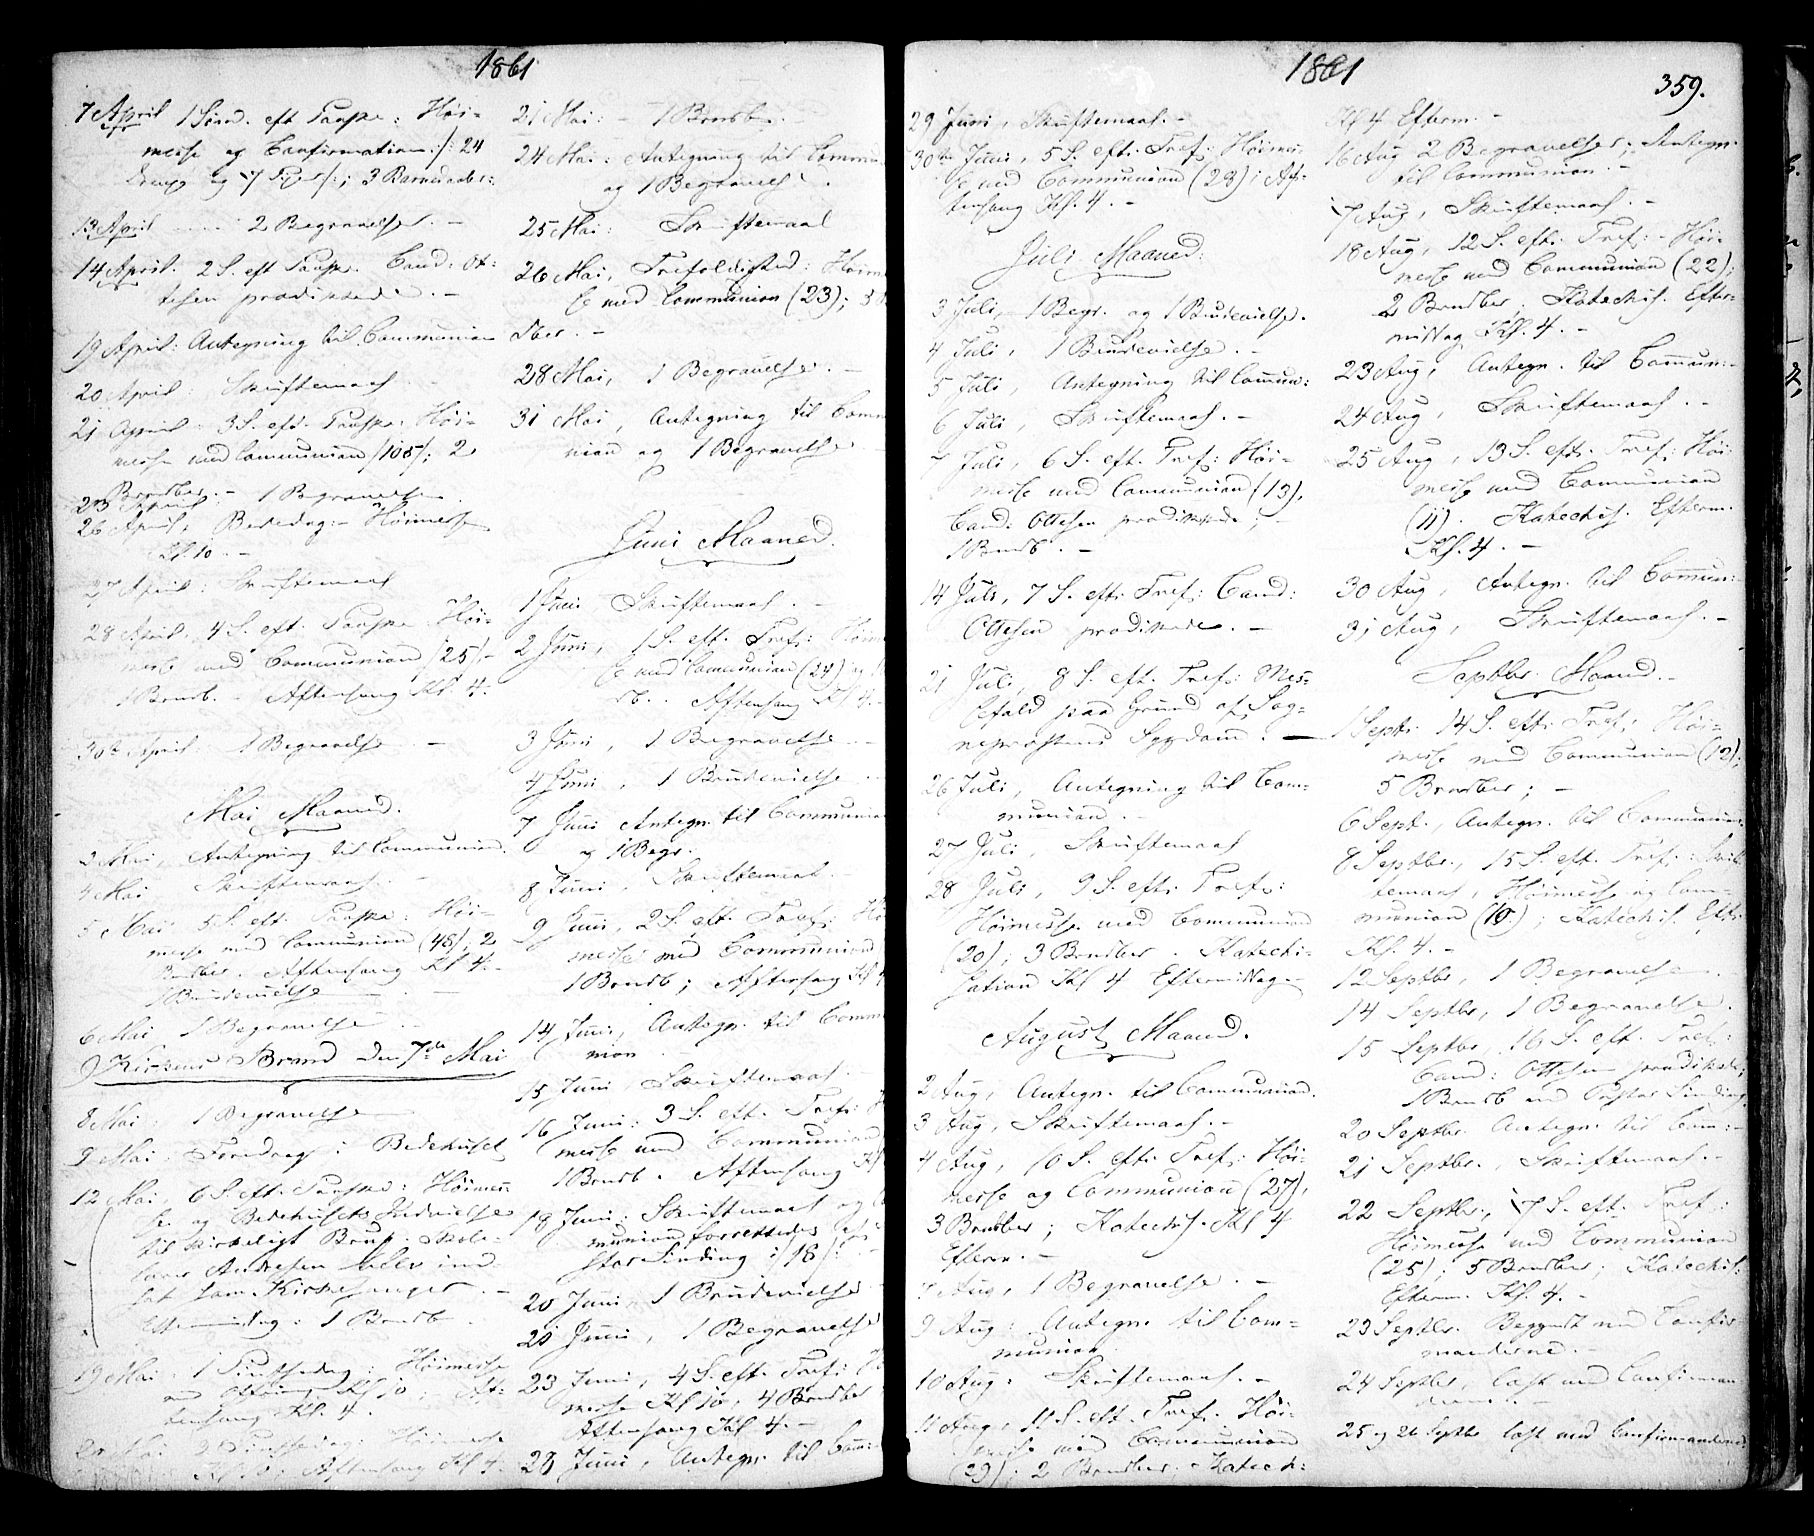 1861
7 April 1 Sønd. eft Paaske: Høi-
messe og Confirmation /: 24
Drenge og 17 Piger /: ; 3 Barnedaab:
13 April 2 Begravelser. -
14 April. 2 S. eft Paaske. Cand: Ot:
tesen prædikede. -
19 April: Antegning til Communion
20 April: Skriftemaal
21 April 3 S. eft. Paaske: Høi-
messe med Communion /105/; 2
Brndbr. -
23 April: 1 Begravelse.
26 April, Bededag: - Høimesse
Kl. 10. -
27 April: Skriftemaal
28 April, 4 S. eft. Paaske Høi-
messe med Communion /25/ -
1 Brndb. - Aftensang Kl 4.
30te April: 1 Begravelse -
Mai Maaned.
3 Mai, Antegning til Communion.
4 Mai Skriftemaal.
5 Mai 5 S. eft. Paaske: Høi-
messe med Communion (48); 2
Brndber. Aftensang Kl 4. -
1 Brudevielse
6 Mai 1 Begravelse
Kirkens Brand den 7de Mai
8 Mai: 1 Begravelse
9 Mai: Foredrag i Bedehuset
12 Mai, 6 S. eft. Paaske: Høimes-
se og Bedehusets Indvielse
til kirkeligt Brug. Skole-
lærer Andresen blev ind-
sat som Kirkesanger. -
Eftermiddag: 1 Brndb
19 Mai 1 Pintsedag: Høimesse
med Offring Kl 10; Af-
tensang Kl. 4.
20 Mai 2 Pintsedag: Høimesse
Kl 10. Aftensang Kl 4.
21 Mai: - 1 Brndb. -
24 Mai: Antegning til Commu
og 1 Begravelse.
25 Mai: Skriftemaal
26 Mai, Trefoldighed: Høim
se med Communion (23); 3
dber. -
28 Mai, 1 Begravelse. -
31 Mai, Antegning til Comm
nion og 1 Begravelse
Juni Maaned.
1 Juni Skriftemaal. -
2 Juni, 1 S. eft. Tref: Høim
se med Communion (24) og
db. Aftensang Kl 4. -
3 Juni, 1 Begravelse -
4 Juni, 1 Brudevielse
7 Juni Antegn. til Communion
og 1 Begr.
8 Juni, Skriftemaal.
9 Juni, 2 S. eft. Tref: Hø
messe med Communion
1 Brndb; Aftensang Kl 4
14 Juni, Antegn. til Commu
nion.
15 Juni, Skriftemaal.
16 Juni: 3 S. eft. Tref: H
messe med Communion
1 Brndb. Aftensang Kl
18 Juni: Skriftemaal og Co
munion forrettedes af
stor Sinding /: 18 /: -
20 Juni, 1 Brudevielse
21 Juni, 1 Begravelse
23 Juni, 4 S. eft. Tref:
messe Kl 10, 4 Brndber
Aftensang Kl 4. -
28 Juni, Antegn. til Com:
1861
359.
29 Juni, Skriftemaal. -
30te Juni, 5 S. eft. Tref: Høimes-
se med Communion (28); Af-
tensang Kl. 4. -
Juli Maaned.
3 Juli, 1 Begr. og 1 Brudevielse.
4 Juli, 1 Brudevielse. -
5 Juli, Antegning til Commun:
6 Juli, Skriftemaal. -
7 Juli, 6 S. eft. Tref: Høi-
messe med Communion (13),
Cand: Ottesen prædikede; -
1 Brndb. -
14 Juli, 7 S. eft. Tref: Cand:
Ottesen prædikede. -
21 Juli, 8 S. eft. Tref: Mes-
sefald paa Grund af Sog-
nepræstens Sygdom. -
26 Juli, Antegning til Com-
munion. -
27 Juli, Skriftemaal
28 Juli, 9 S. eft. Tref:
Høimesse med Communion
(20); 3 Brndber. Katechi-
sation Kl 4 Eftermiddag -
August Maaned.
2 Aug, Antegn. til Communion.
3 Aug, Skriftemaal. -
4 Aug, 10 S. eft. Tref: Høi-
messe og Communion (27),
3 Brndber; Katechis. Kl 4
Efterm. -
7 Aug, 1 Begravelse. -
9 Aug: Antegn. til Com-
munion.
10 Aug: Skriftemaal. -
11 Aug, 11 S. eft. Tref. Høi-
messe med Communion
(29); 2 Brndber. Katech:
Kl 4 Efterm. -
16 Aug 2 Begravelser; Antegn.
til Communion. -
17 Aug, Skriftemaal. -
18 Aug, 12 S. eft. Tref: Høi-
messe med Communion (22);
2 Brndber; Katechis. Efter-
middag Kl. 4. -
23 Aug, Antegn. til Commun: -
24 Aug, Skriftemaal. -
25 Aug, 13 S. eft. Tref: Høi-
messe med Communion
(11). Katechis. Efterm.
Kl. 4. -
30 Aug, Antegn. til Commun: -
31 Aug, Skriftemaal. -
Septbr Maaned. -
1 Septr 14 S. eft. Tref: Høi-
messe med Communion (12);
5 Brndber; -
6 Sept., Antegn. til Communion.
8 Septbr., 15 S. eft. Tref: Skrif-
temaal, Høimesse og Com-
munion (10); Katechis. Eft:
Kl. 4. -
12 Septbr, 1 Begravelse.
14 Septbr, 1 Begravelse.
15 Septbr, 16 S. eft. Tref:
Cand: Ottesen prædikede;
1 Brndb ved Pastor Sinding
20 Septbr. Antegn. til Com: -
21 Septbr., Skriftemaal. -
22 Septbr, 17 S. eft. Tref:
Høimesse med Communion
(25); 5 Brndber. Katechis:
Efterm. Kl. 4. -
23 Septbr. Begyndt med Confir
manderne. -
24 Septbr, læst med Confirman
derne. -
25 og 26 Septbr læst med Confirmanderne